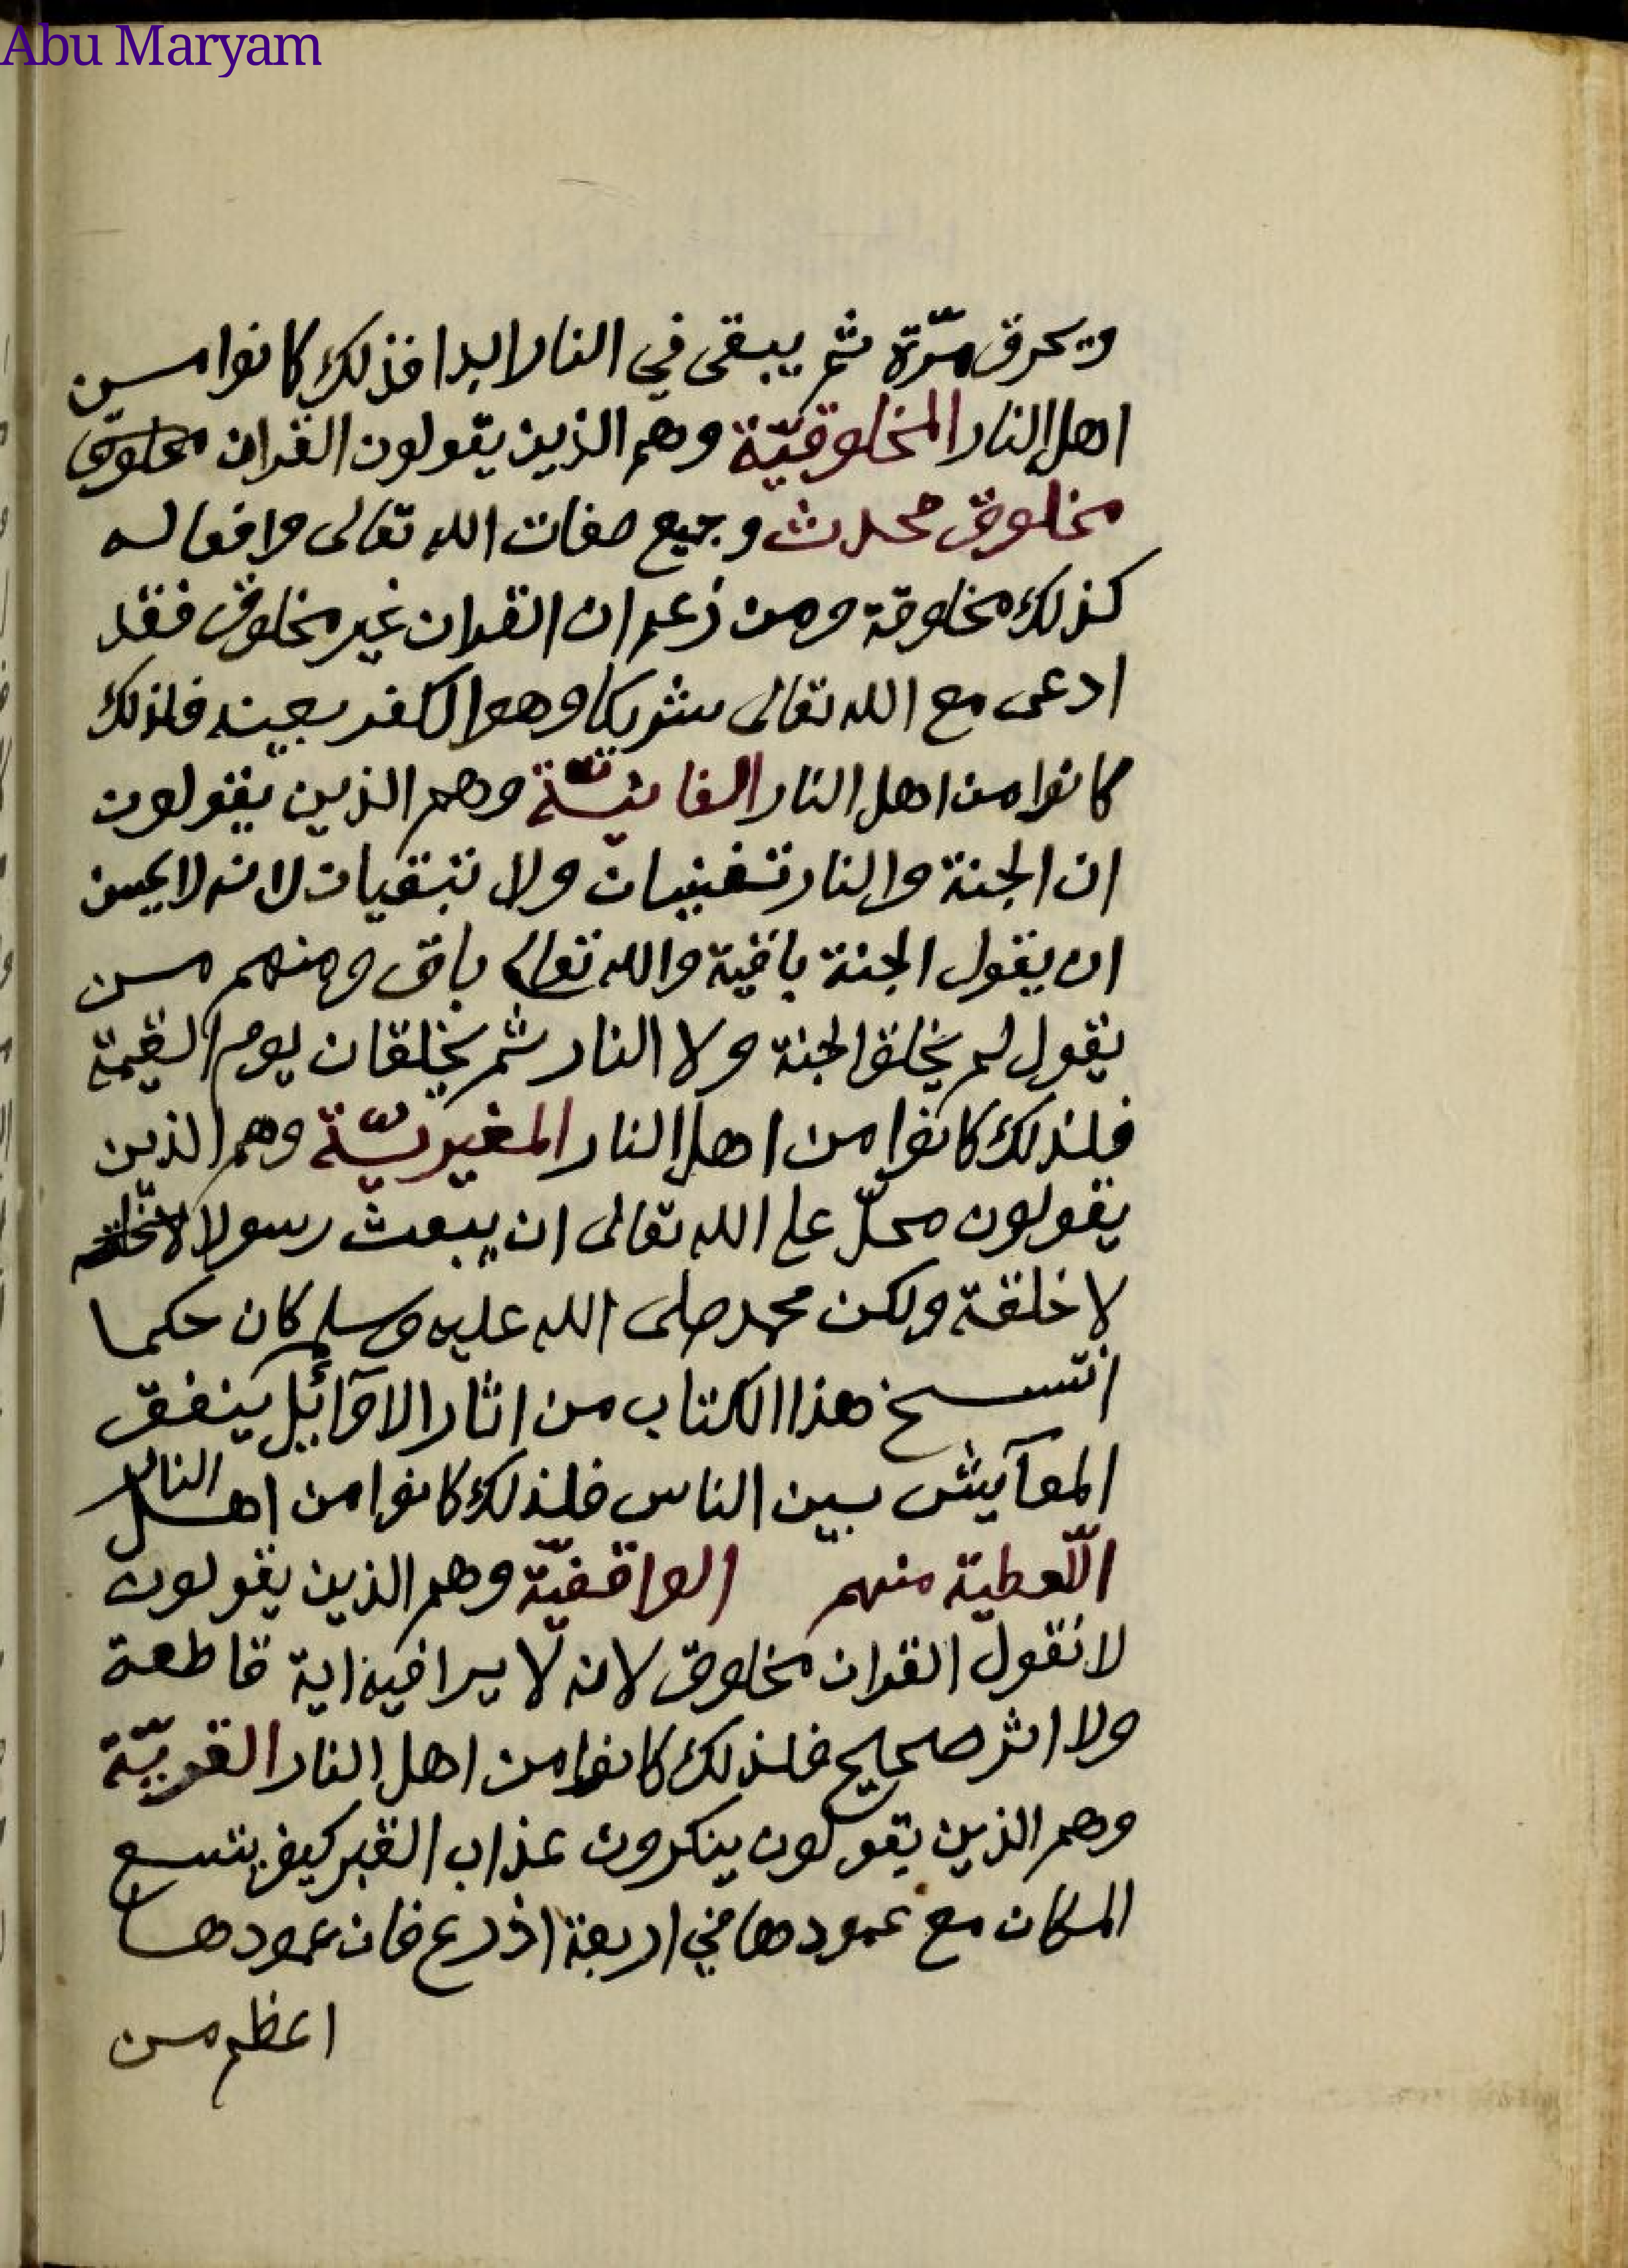 Abu Maryam
ويحرق مرّة ثم يبقى في النار ابدا فذلك كانوا من
اهل النار المخلوقيّة وهم الذين يقولون القران مخلوق
مخلوق محدث وجميع صفات الله تعالى وافعاله
كذلك مخلوقة ومن زعم ان القران غير مخلوق فقد
ادعى مع الله تعالى شريكا وهو الكفر بعينه فلذلك
كانوا من اهل النار الفانيّة وهم الذين يقولون
ان الجنة والنار تفنيان ولا تبقيان لانه لا يمكن
ان يقول الجنة باقية والله تعالى باق ومنهم من
يقول لم يخلق الجنة ولا النار ثم يخلقان يوم القيمة
فلذلك كانوا من اهل النار المغيريّة وهم الذين
يقولون محلّ على الله تعالى ان يبعث رسولا
لا خلقة ولكن محمد صلى الله عليه وسلم كان حكما
انتسخ هذا الكتاب من اثار الاوآئل ينفق
المعآيش بين الناس فلذلك كانوا من اهل النار
اللّعطية منهم الواقفيّة وهم الذين يقولون
لا نقول القران مخلوق لانه لا يرا فيه اية قاطعة
ولا اثر صحيح فلذلك كانوا من اهل النار القبريّة
وهم الذين يقولون ينكرون عذاب القبر كيف يتسع
المكان مع عمودها في اربعة اذرع فان عمودها
اعظم من